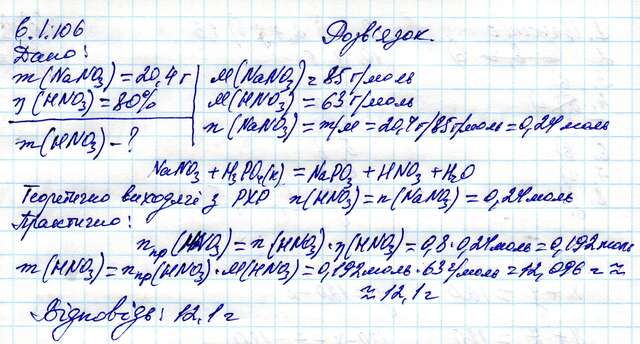 6.1.106
Розв'язок.
Дано:
m(NaNO₃)=20,4 г
η(HNO₃)=80%
m(HNO₃)-?
M(NaNO₃)=85 г/моль
M(HNO₃)=63 г/моль
n(NaNO₃)=m/M=20,4г/85г/моль=0,24 моль
NaNO₃+H₃PO₄(к)=NaPO₃+HNO₃+H₂O
Теоретично виходячи з РХР n(HNO₃)=n(NaNO₃)=0,24моль
Практично:
nпр(HNO₃)=n(HNO₃)·η(HNO₃)=0,8·0,24моль=0,192 моль
m(HNO₃)=nпр(HNO₃)·M(HNO₃)=0,192моль·63 г/моль=12,096 г ≈
≈ 12,1 г
Відповідь: 12,1 г